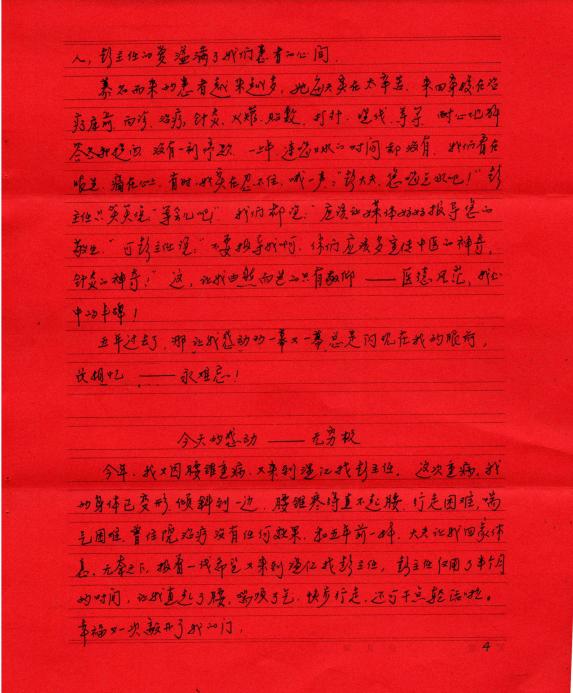 人，彭主任的爱溢满了我们患者的心间。
慕名而来的患者越来越多，她每天实在太辛苦，来回穿梭在治
疗床前，面诊、治疗、针灸、火罐、
答各种提问，没有一刻停歇。一上午，连喝口水的时间都没有，我们看在
眼里，痛在心上，有时，我实在忍不住，喊一声："彭大夫，您喝点水吧！"彭
主任只笑笑说："等会儿吧！"我们都说："应该让媒体好好报导您的
"可彭主任说："不要报导我啊，你们应该多宣传中医的神奇，
针灸的神奇！"这，让我由然而生的只有敬仰——医德风范，我心
中的丰碑！
五年过去了，那让我感动的一幕又一幕总是闪现在我的眼前，
我想说——永难忘！
今天的感动——无穷极
今年，我又因腰椎重病，又来到 找彭主任。这次重病，我
的身体已变形，倾斜到一边，腰椎疼得直不起腰，行走困难，喘
气困难，曾住院治疗没有任何效果，和五年前一样，大夫让我回家休
息，无奈之下，报着一线希望又来到 找彭主任，彭主任仅用了半个月
的时间，让我直起了腰，喘顺了气，快步行走，还可干点轻活啦。
幸福又一次敲开了我的门，
4